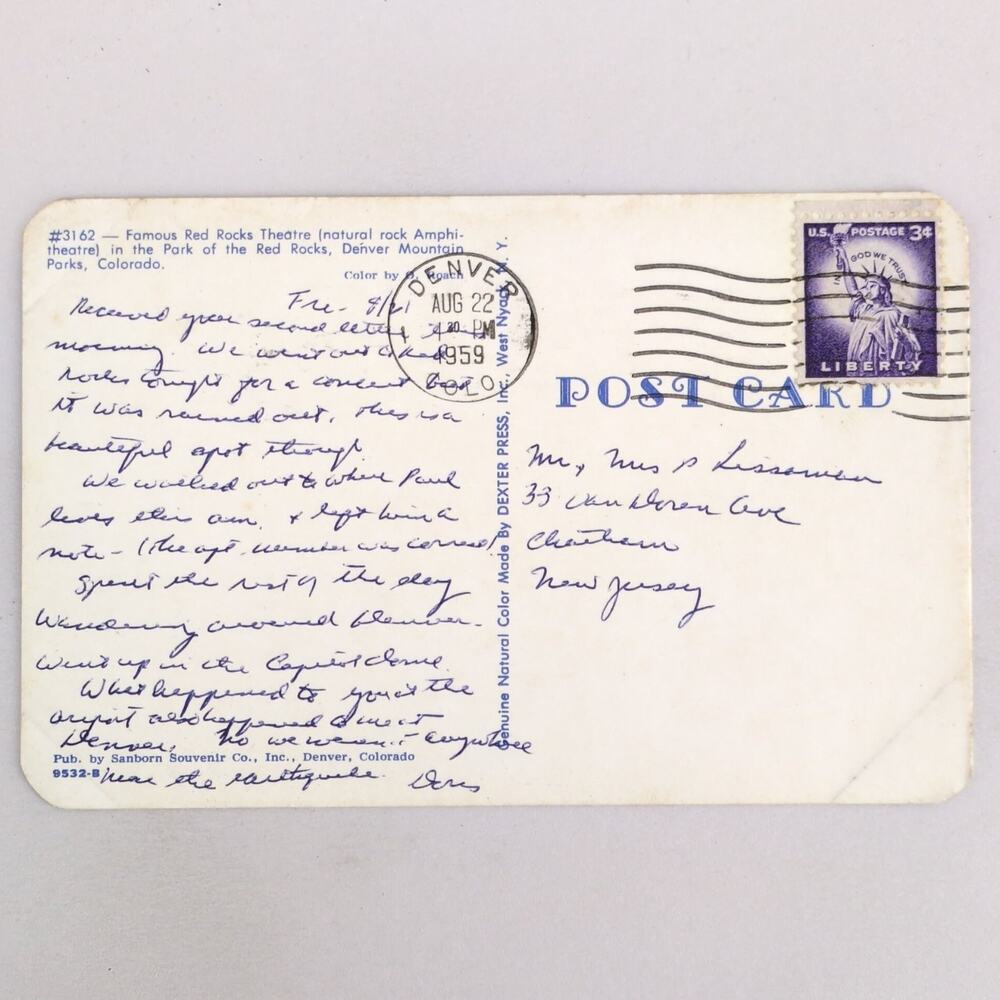 #3162 — Famous Red Rocks Theatre (natural rock Amphi-
theatre) in the Park of the Red Rocks, Denver Mountain
Parks, Colorado.
Color by Roach
Fri. 8/21
Received your second letter this
morning. We went out to Red
Rocks tonight for a concert but
it was rained out. This is a
beautiful spot though.
We walked out to where Paul
lives this am. & left him a
note - (the apt. number was correct)
Spent the rest of the day
wandering around Denver.
Went up in the Capitol dome.
What happened to you at the
airport also happened to me at
Denver. No we weren't anywhere
Pub. by Sanborn Souvenir Co., Inc., Denver, Colorado
9532-B
near the earthquake. Doris
Genuine Natural Color Made By DEXTER PRESS, Inc., West Nyack, N. Y.
DENVER
AUG 22
4 30 PM
1959
COLO.
U.S. POSTAGE 3¢
IN GOD WE TRUST
LIBERTY
POST CARD
Mr, Mrs
33 Van Doren Ave
Chatham
New Jersey